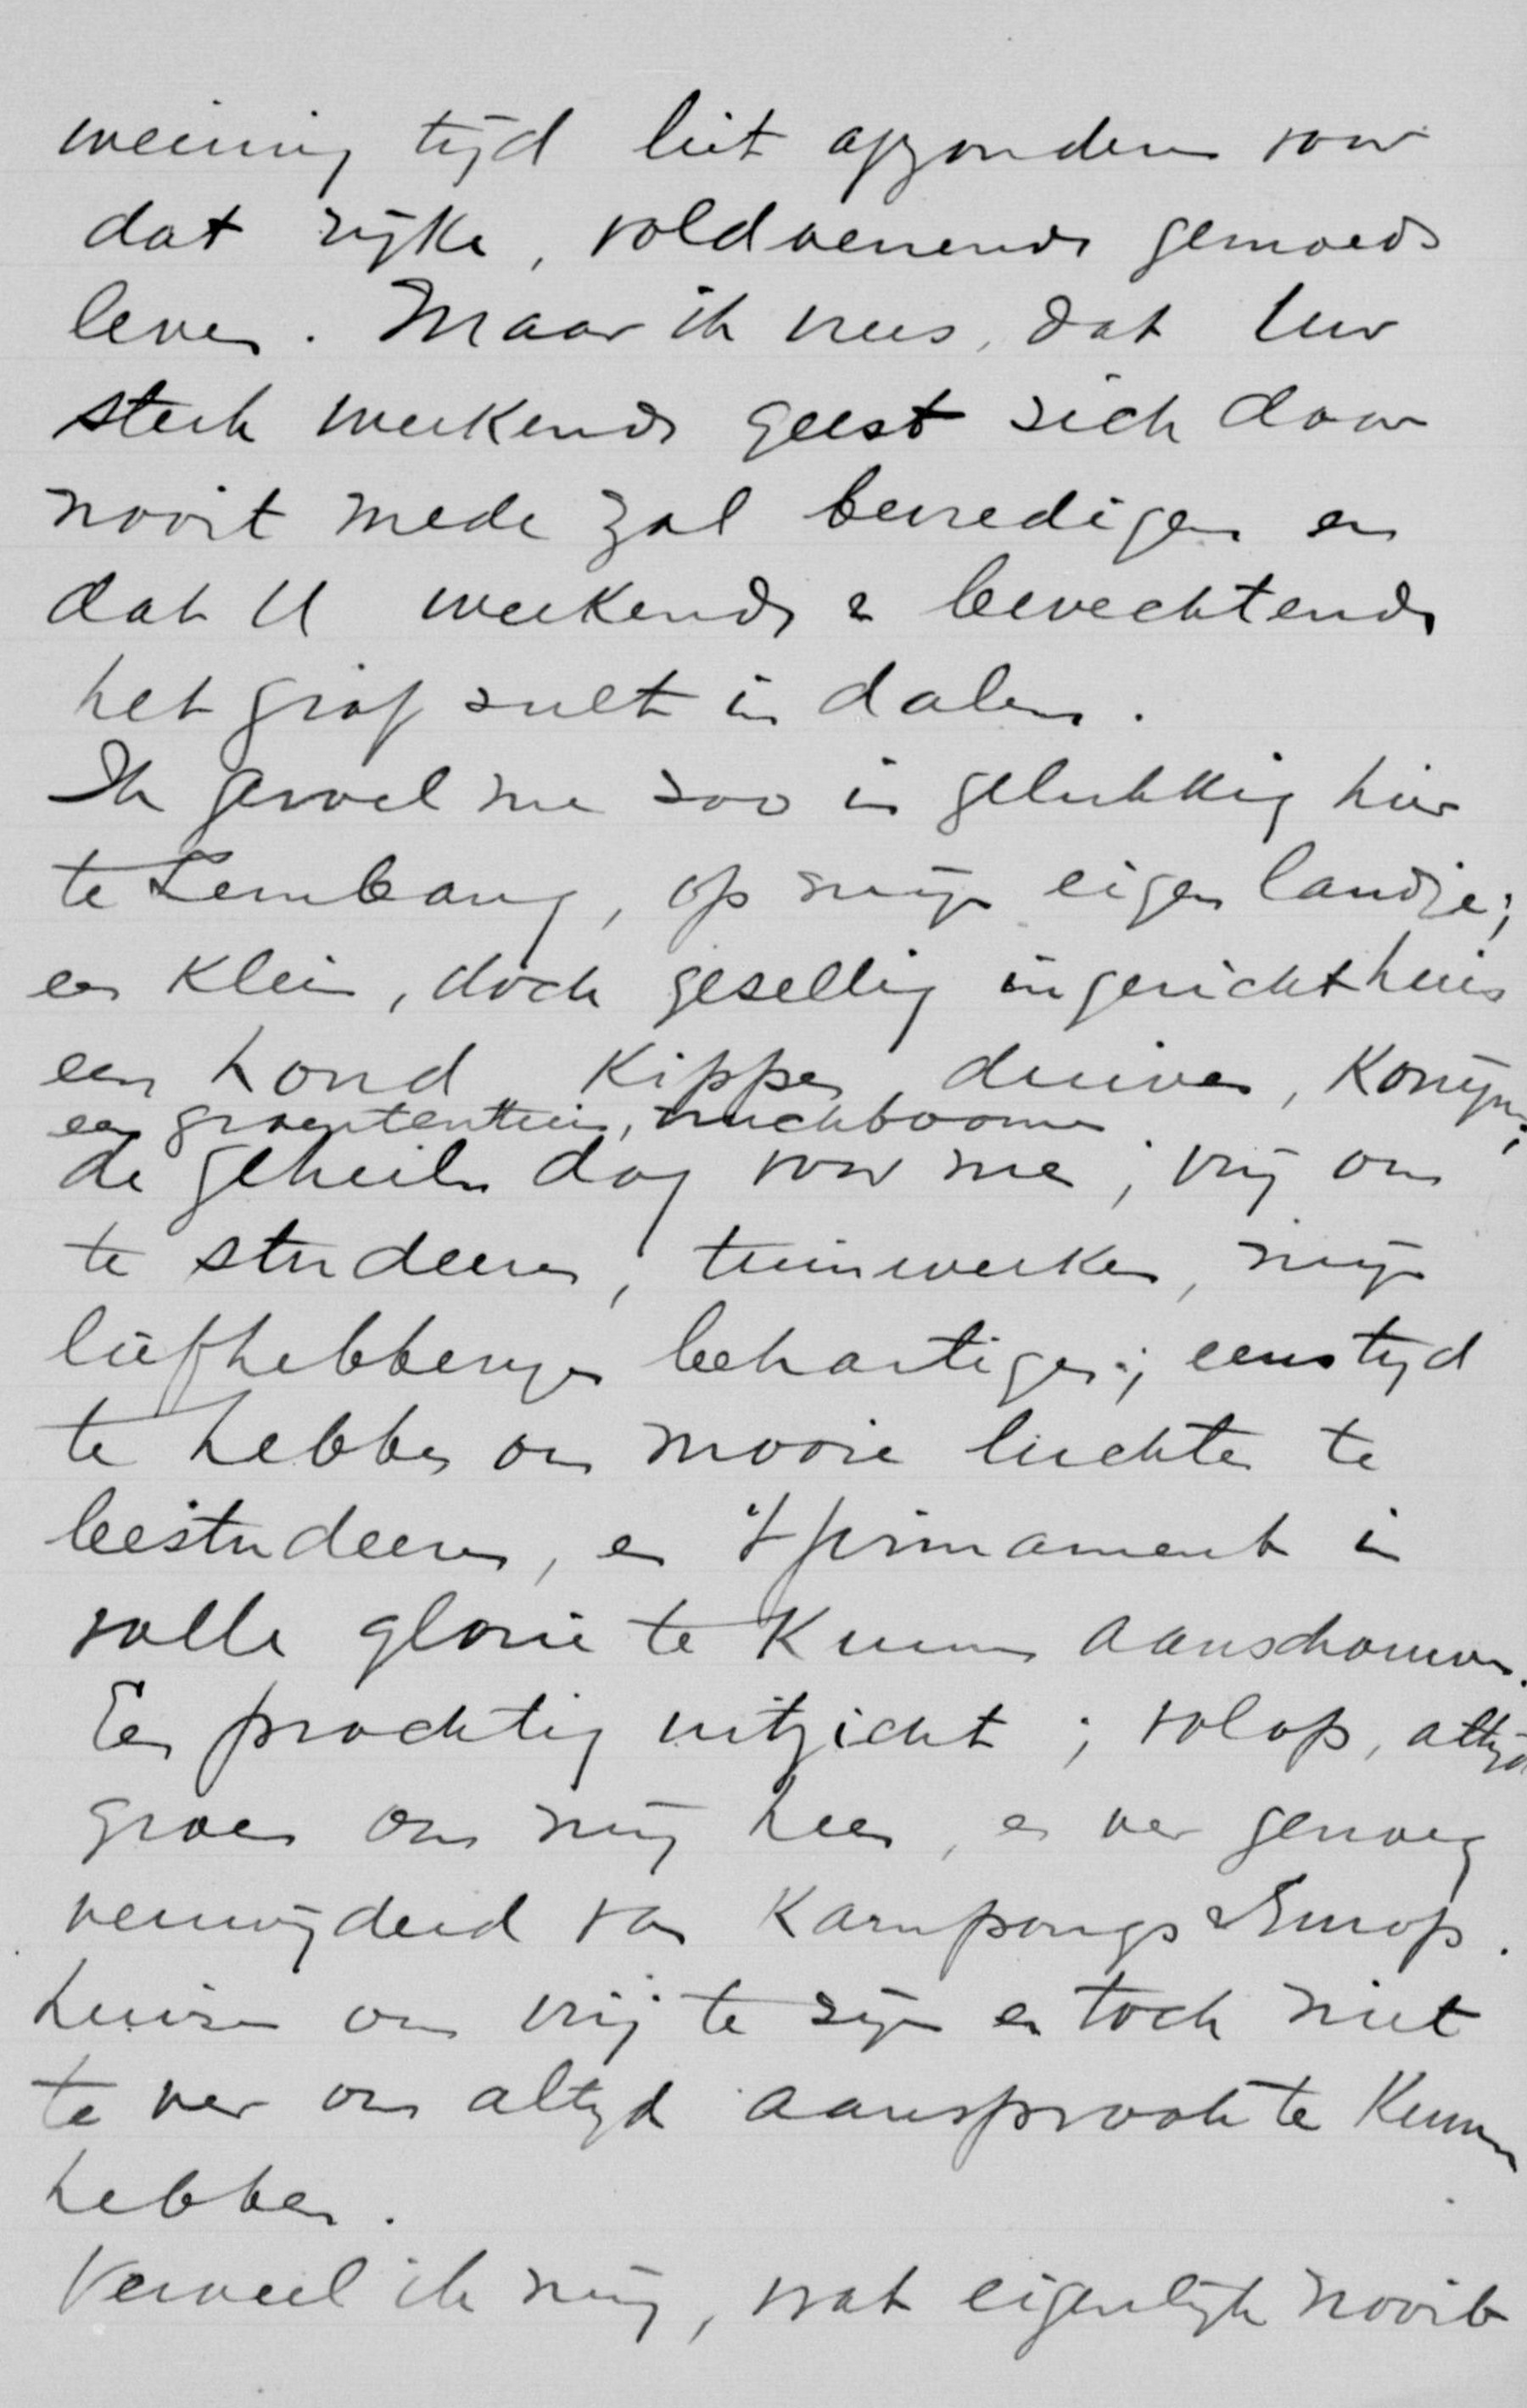 weinig tijd liet afzonderen voor
dat rijke, voldoenende gemoeds
leven. Maar ik vrees, dat Uw
sterk werkende geest sich daar
nooit mede zal bevredigen en
dat U werkende & bevechtende
het graf sult in dalen.
Ik gevoel me soo in gelukkig hier
te Lembang, op mijn eigen landje;
een klein, doch gesellig ingericht huis
een hond kippen, duiven, konijnen;
een groententuin, vruchtboomen
de geheele dag voor me; vrij om
te studeeren, tuinwerken, mijn
liefhebberijen behartigen; eens tijd
te hebben om mooie luchten te
bestudeeren, en 't firmament in
volle glorie te kunnen aanschouwen.
Een prachtig uitzicht; volop, altijd
groen om mij heen, en ver genoeg
verwijderd van Kampongs & Europ.
huizen om vrij te sijn en toch niet
te ver om altijd aanspraak te kunnen
hebben.
Verveel ik mij, wat eigenlijk nooit